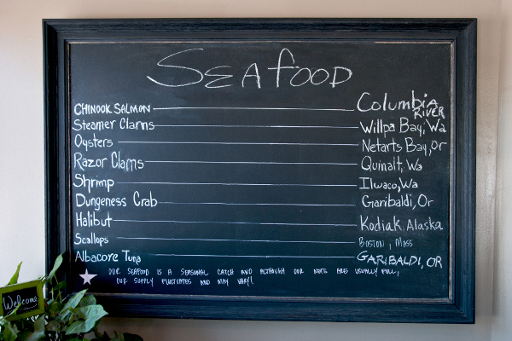 SEAfOOD
CHINOOK SALMON Columbia RIVER
Steamer Clams Willpa Bay, Wa
Oysters Netarts Bay, or
Razor Clams Quinalt, Wa
Shrimp Ilwaco, Wa
Dungeness Crab Garibaldi, Or
Halibut Kodiak Alaska
Scallops Boston, Mass
Albacore Tuna GARIBALDI, OR
OUR SEAFOOD IS A SEASONAL CATCH AND ALTHOUGH OUR NETS ARE USUALLY FULL,
OUR SUPPLY FLUCTUATES AND MAY VARY!
Welcome